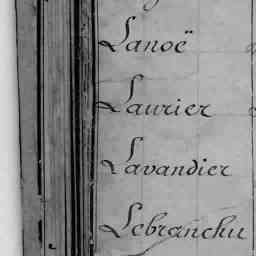 Lanoë
Laurier
Lavandier
Lebranchu